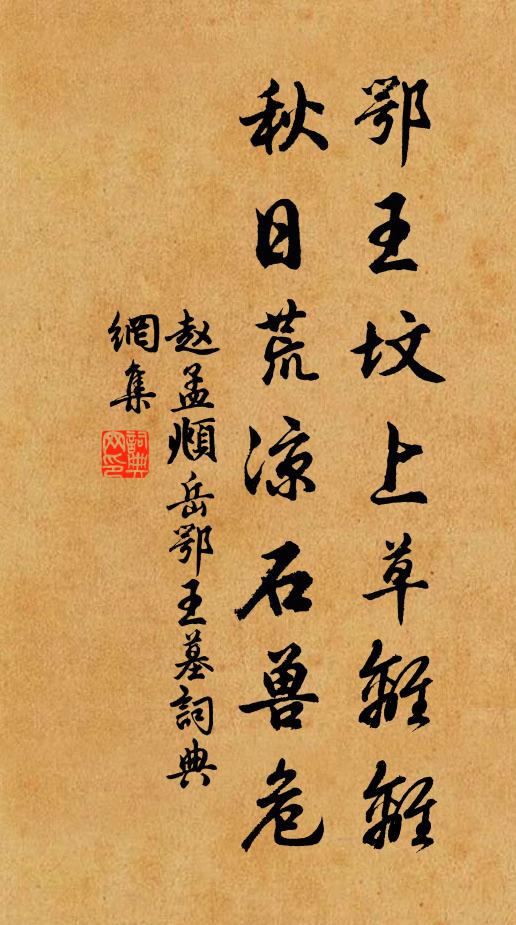 鄂王坟上草離離
秋日荒凉石兽危
赵孟頫岳鄂王墓詞典
網集
詞典
网印